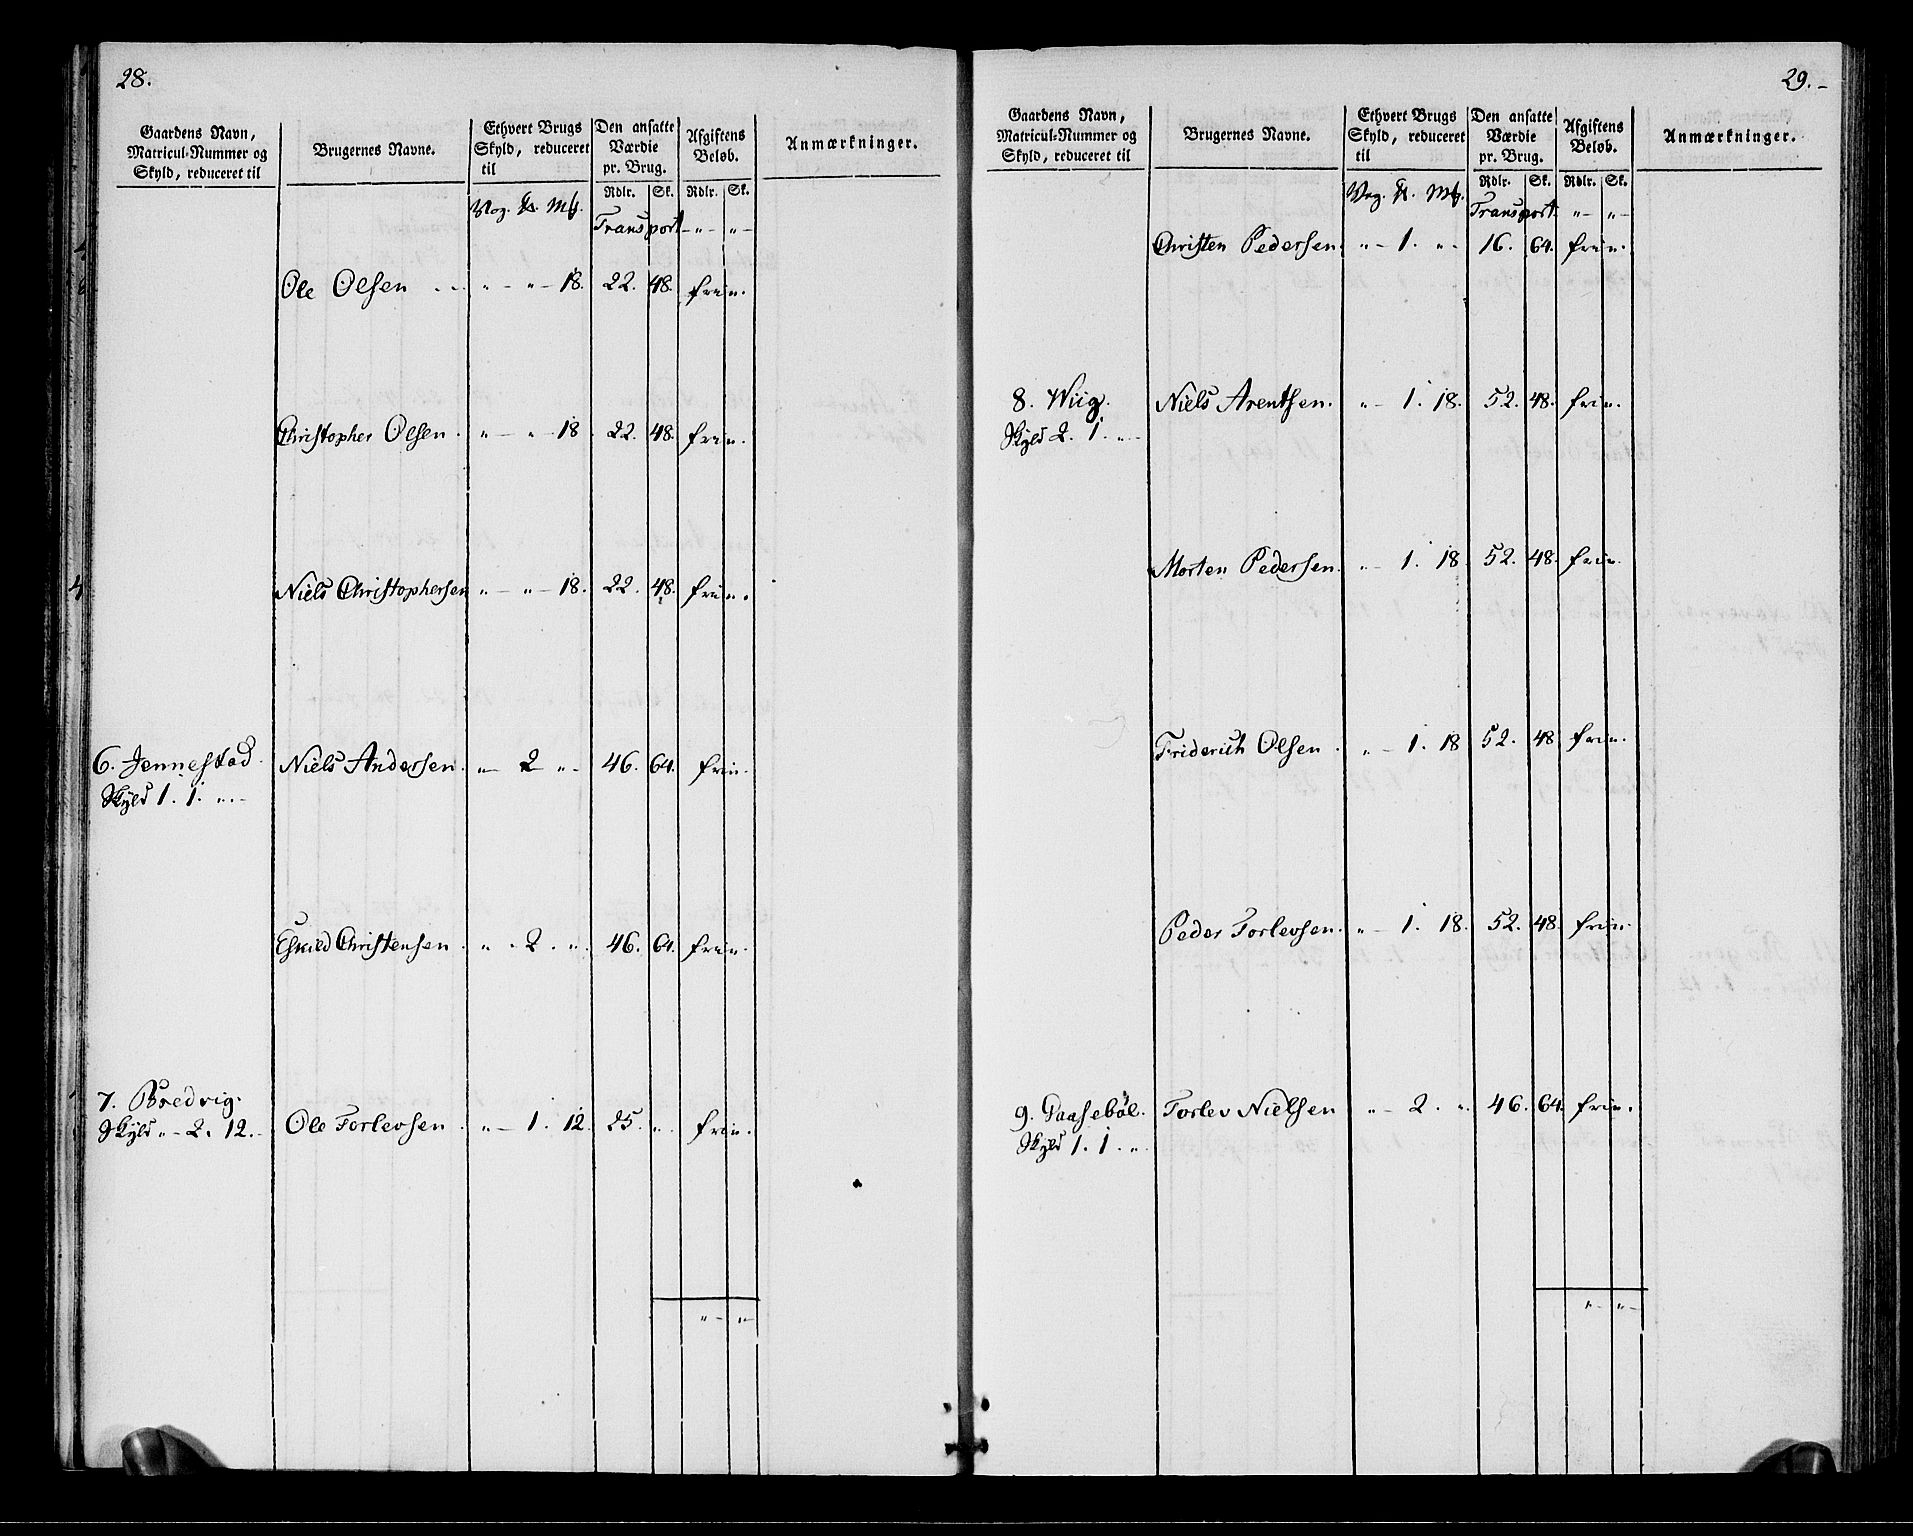 28.
Gaardens Navn,
Matricul-Nummer og
Skyld, reduceret til
Brugernes Navne.
Ethvert Brugs
Skyld, reduceret
til
Den ansatte
Værdie
pr. Brug.
Afgiftens
Beløb.
Anmærkninger.
Rdlr. Sk. Rdlr. Sk.
Transport „ „
Ole Olsen „ „ 18. 22. 48. frie.
Christopher Olsen. „ „ 18. 22. 48. frie.
Niels Christophersen „ „ 18. 22. 48. frie.
6. Jennestad. Niels Andersen. „ 2 „ 46. 64. frie.
Skyld 1. 1. „
Eskild Christensen. „ 2. „ 46. 64. frie.
7. Bredvig. Ole Torlevsen. „ 1. 12. 25. „ frie.
Skyld „ 2. 12.
„ „
29.
Gaardens Navn,
Matricul-Nummer og
Skyld, reduceret til
Brugernes Navne.
Ethvert Brugs
Skyld, reduceret
til
Den ansatte
Værdie
pr. Brug.
Afgiftens
Beløb.
Anmærkninger.
Rdlr. Sk. Rdlr. Sk.
Transport „ „
Christen Pedersen. „ 1. „ 16. 64. frie.
8. Wiig. Niels Arentsen. „ 1. 18. 52. 48. frie.
Skyld 2. 1. „
Morten Pedersen. „ 1. 18 52. 48. frie.
Friderich Olsen. „ 1. 18 52. 48 frie.
Peder Torlevsen. „ 1. 18. 52. 48. frie.
9. Gaasebøl. Torlev Nielsen „ 2. „ 46. 64. frie.
Skyld 1. 1. „
„ „